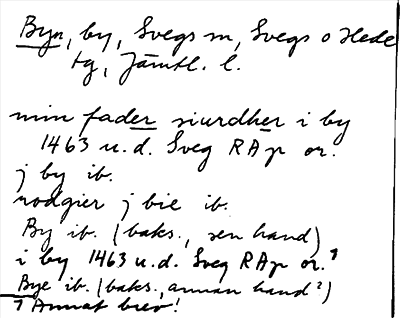 Byn, by, Svegs sn, Svegs o Hede
tg, Jämtl. l.
min fader siurdher i by
1463 u.d. Sveg RAp or.
j by ib.
rodgier j bie ib.
By ib. (baks., sen hand)
i by 1463 u.d. Sveg RAp or.¹
Bye ib. (baks., annan hand?)
¹ Annat brev!